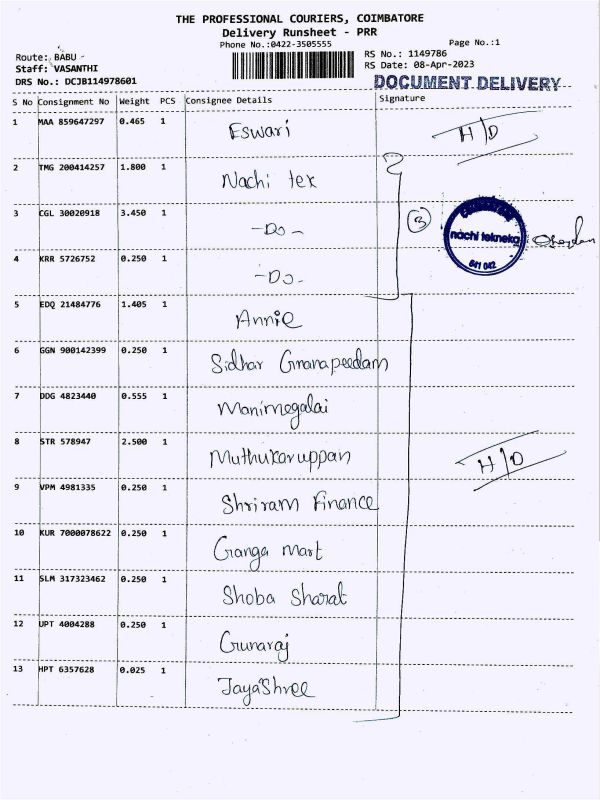 THE PROFESSIONAL COURIERS, COIMBATORE
Delivery Runsheet - PRR
Phone No.:0422-3505555 Page No.:1
Route: BABU - RS No.: 1149786
Staff: VASANTHI RS Date: 08-Apr-2023
DRS No.: DCJB114978601 DOCUMENT DELIVERY
S No Consignment No Weight PCS Consignee Details Signature
1 MAA 859647297 0.465 1 Eswari H/D
2 TMG 200414257 1.800 1 Nachi tex
3 CGL 30020918 3.450 1 -Do- 3
nachi tekneka
641 042
4 KRR 5726752 0.250 1 -Do-
5 EDQ 21484776 1.405 1 Annie
6 GGN 900142399 0.250 1 Sidhar Gnanapeedam
7 DDG 4823440 0.555 1 Manimegalai
8 STR 578947 2.500 1 Muthukaruppan H/D
9 VPM 4981335 0.250 1 Shriram Finance
10 KUR 7000078622 0.250 1 Ganga mart
11 SLM 317323462 0.250 1 Shoba Sharat
12 UPT 4004288 0.250 1 Gunaraj
13 HPT 6357628 0.025 1 JayaShree